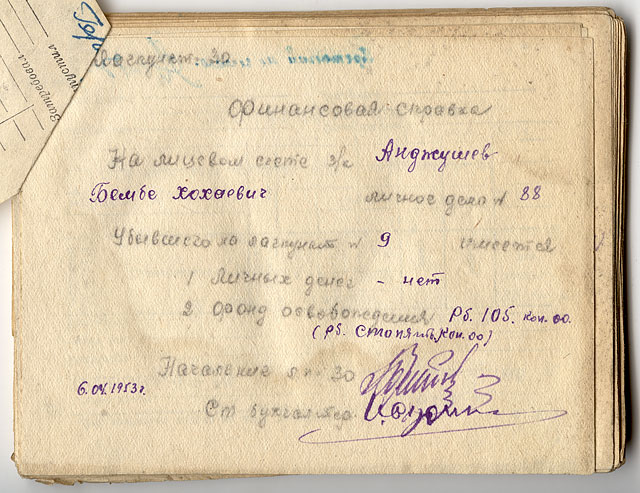 Затребовал
пустил
Лагпункт 30
Финансовая справка
На лицевом счете з/к Анджушев
Бембе Хохаевич личное дело № 88
Убывшего на лагпункт № 9 имеется
1 Личных денег - нет
2 Фонд освобождения Рб. 105. коп. 00.
(Рб. Сто пять, коп. 00)
Начальник л/п 30
6.04.1953г.
Ст бухгалтер